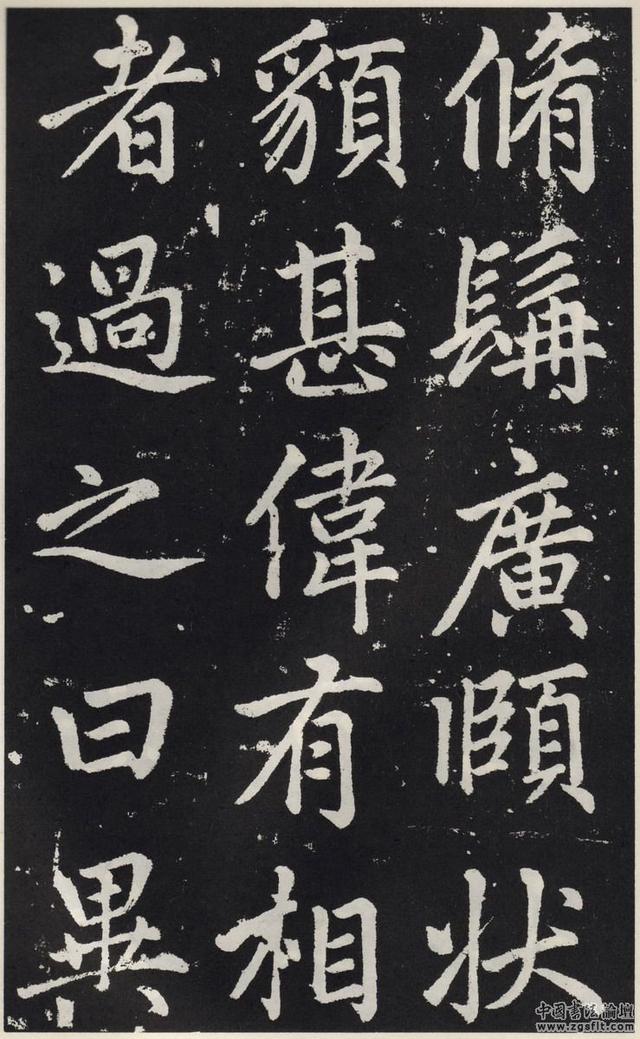 脩髯廣頤狀
貌甚偉有相
者過之曰異
中国书法论坛
www.zgsflt.com